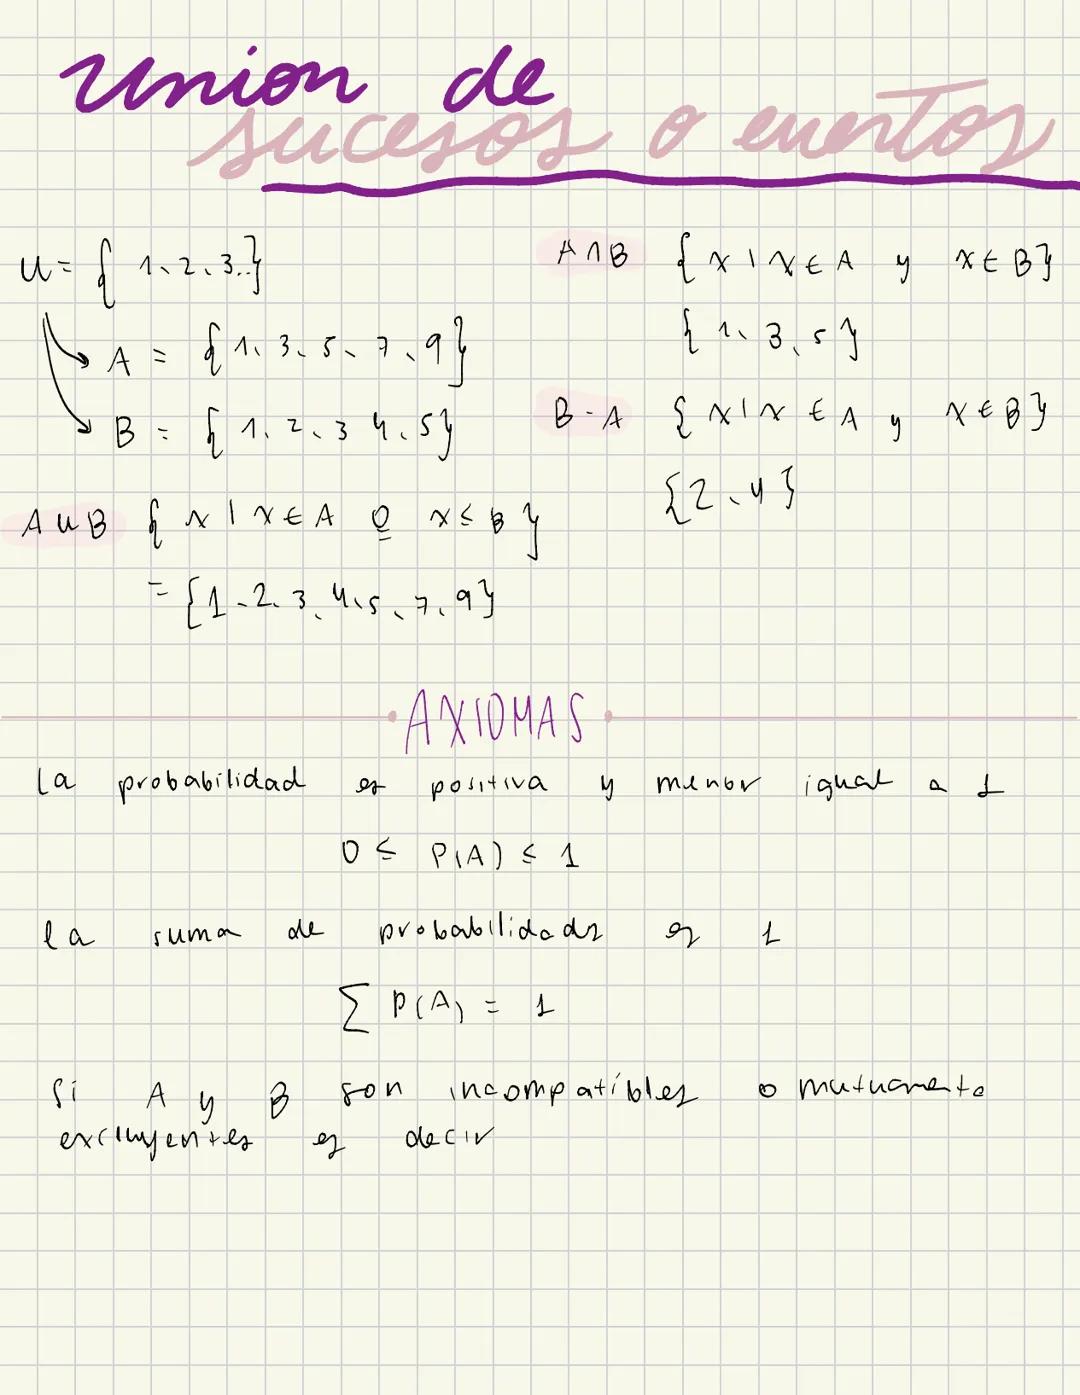 Union de
sucesos o eventos
U = { 1, 2, 3..}
A = {1, 3, 5, 7, 9}
B = { 1, 2, 3 4, 5}
A U B { x | x ∈ A o x ≤ B }
= {1, 2, 3, 4, 5, 7, 9}
A ∩ B { x | x ∈ A y x ∈ B}
{ 1, 3, 5 }
B - A { x | x ∈ A y x ∈ B}
{2, 4}
AXIOMAS
La probabilidad es positiva y menor igual a 1
0 ≤ P(A) ≤ 1
la suma de probabilidades es 1
∑ P(A) = 1
Si A y B son incompatibles o mutuamente
excluyentes es decir